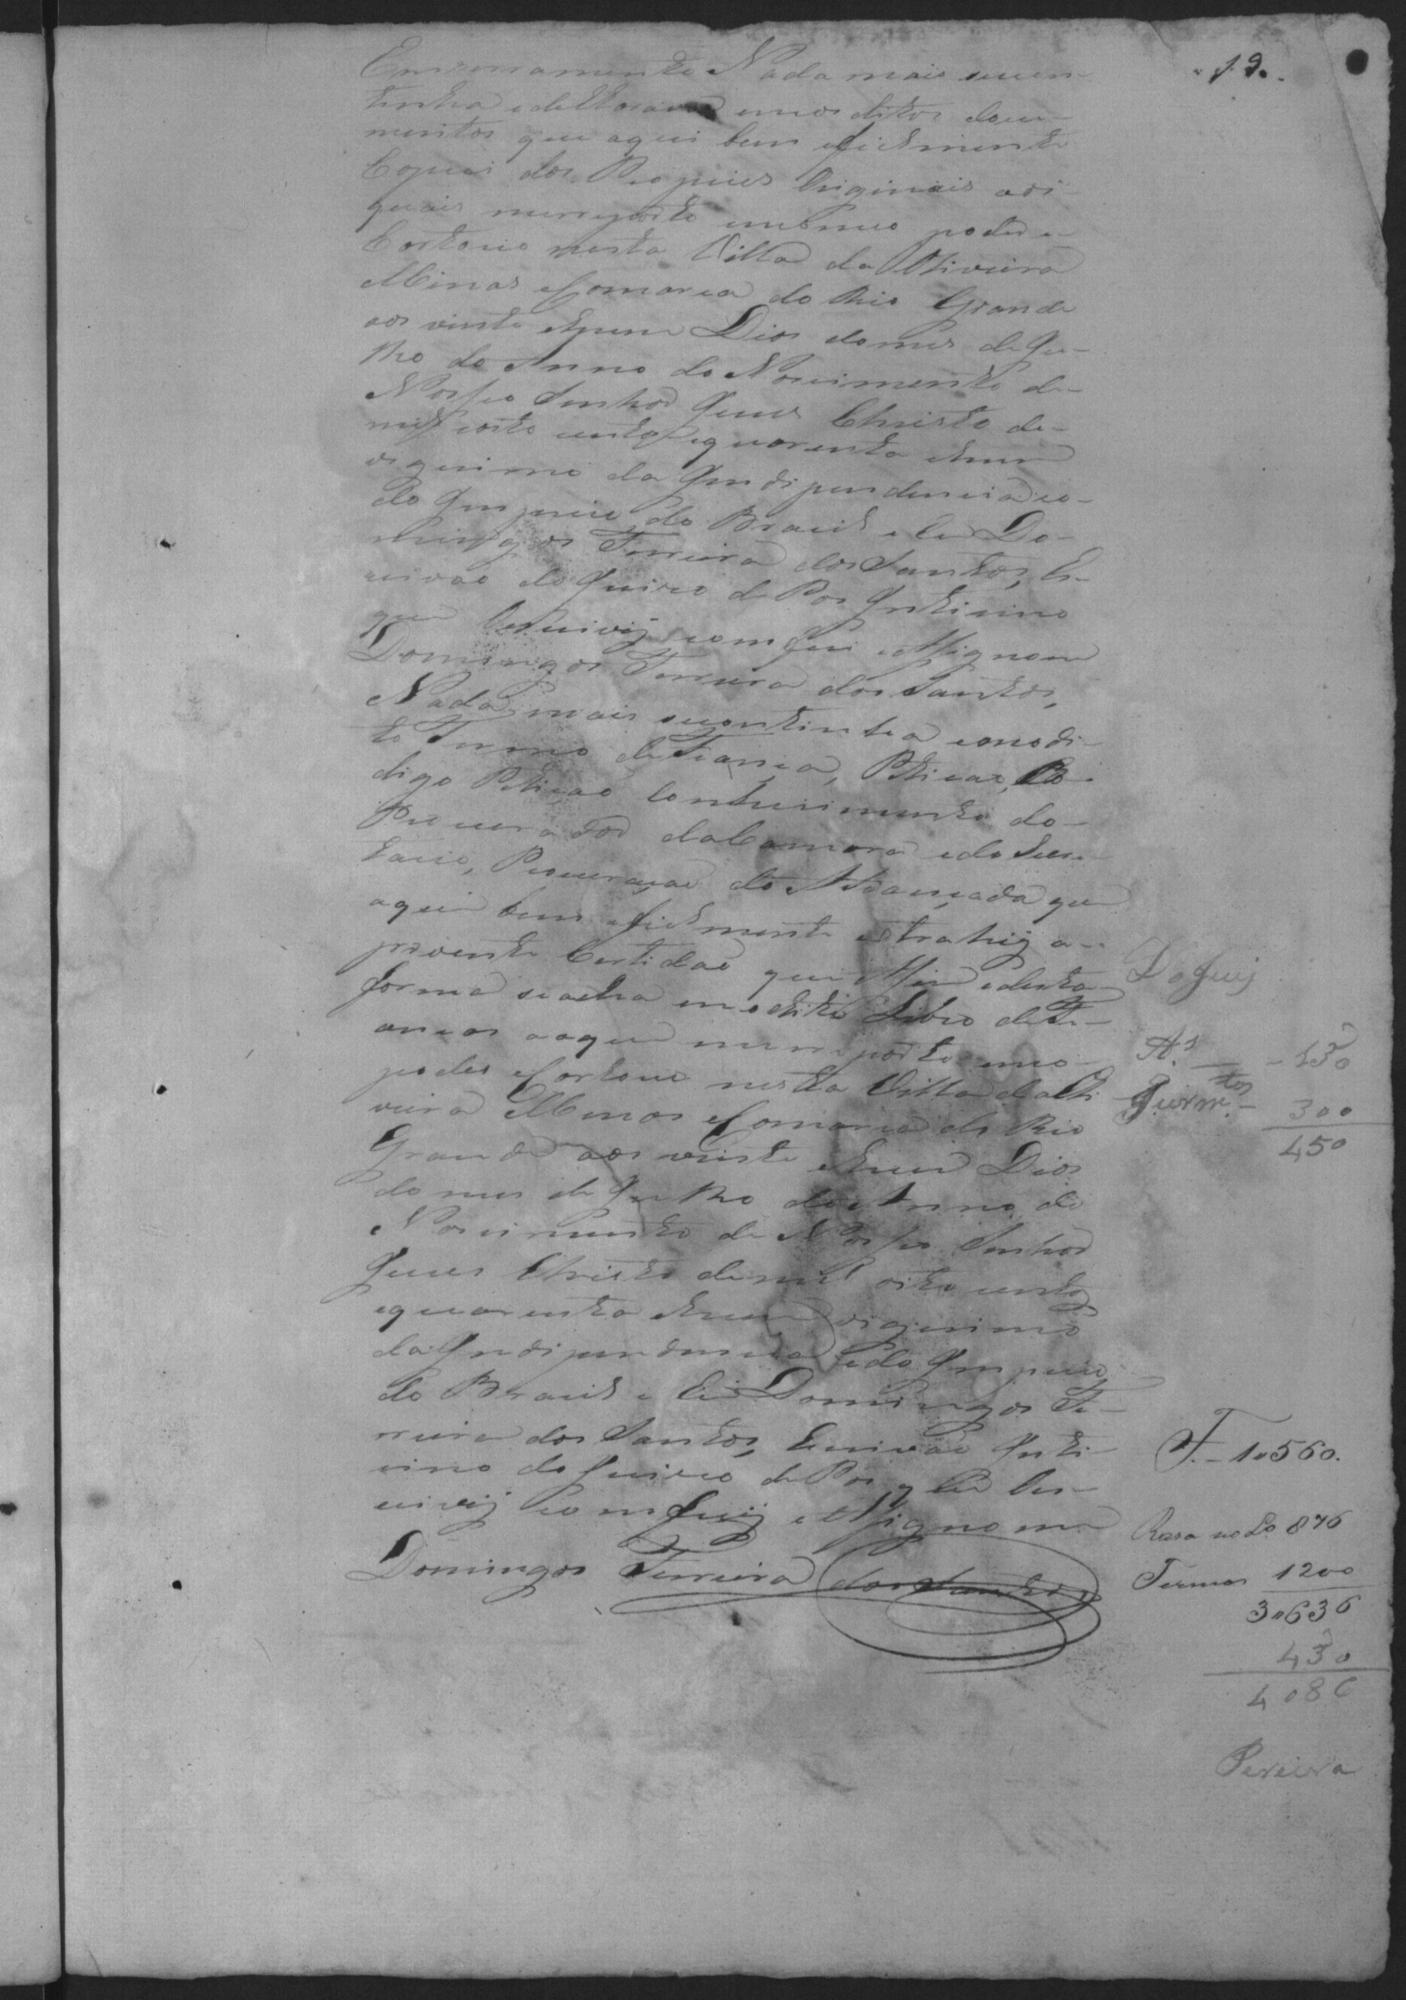 19.
Emserramento Nada mais secon-
tinha e declarava em os ditos docu-
mentos que aqui bem e fielmente
Copiei dos Propiies Originais aos
quais me reporto em o meo poder e
Cartorio nesta Villa da Oliveira
Minas e Comarca do Rio Grande
aos vinte e hum Dias do mes de Ju-
lho do Anno do Nascimento de
Nosso Senhor Jesus Christo de
mil oito centos e quarenta e hum
vigesimo da Independencia e
do Imperio do Brasil e Eu Do-
mingos Ferreira dos Santos, Es-
crivão do Juizo de Pas Interino
que Escrivij comferi e Assignom
Domingos Ferreira dos Santos,
Nada mais secontinha e no di-
to Termo de Fiança, Petição,
digo Petição Conhecimento do
Procurador da Camara e do Secre-
tario, Procuração do Afiançada que
aqui bem e fielmente estrahij a
prezente Certidão que Assim e desta
forma se acha em o dito Libro de Fi-
anças ao que me reporto em o meo
poder e Cartorio nesta Villa da Oli-
veira Minas e Comarca do Rio
Grande aos vinte e hum Dias
do mes de Julho do Anno do
Nascimento de Nosso Senhor
Jesus Christo de mil oito centos
e quarenta e hum vigesimo
da Independencia e do Imperio
do Brasil e Eu Domingos Fe-
rreira dos Santos, Escrivão Inte-
rino do Juizo de Pas que Es-
crivij comferij e Assignom
Domingos Ferreira dos Santos
Do Juij
As. - 150
Jurm.tos - 300
450
F. - 1"560.
Rasa 876
Termos 1200
3"636
450
4 086
Pereira